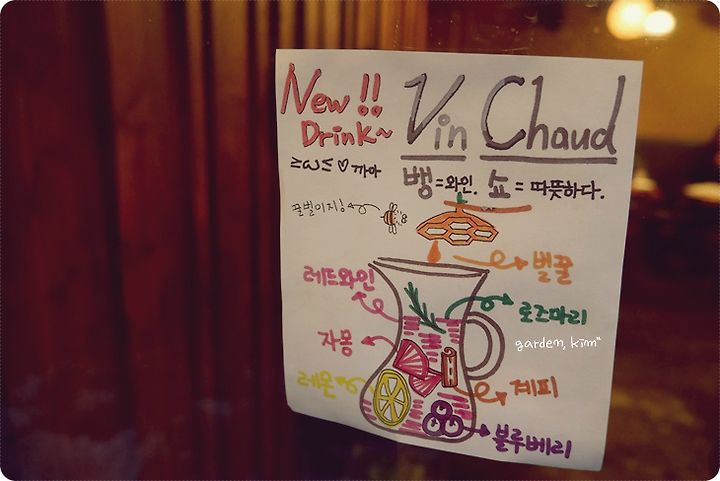 New!! Vin Chaud
Drink~
≥ω≤ ♡ 까아
뱅=와인. 쇼=따뜻하다.
꿀벌이지!
벌꿀
레드와인
로즈마리
자몽
garden, kim"
레몬
계피
블루베리